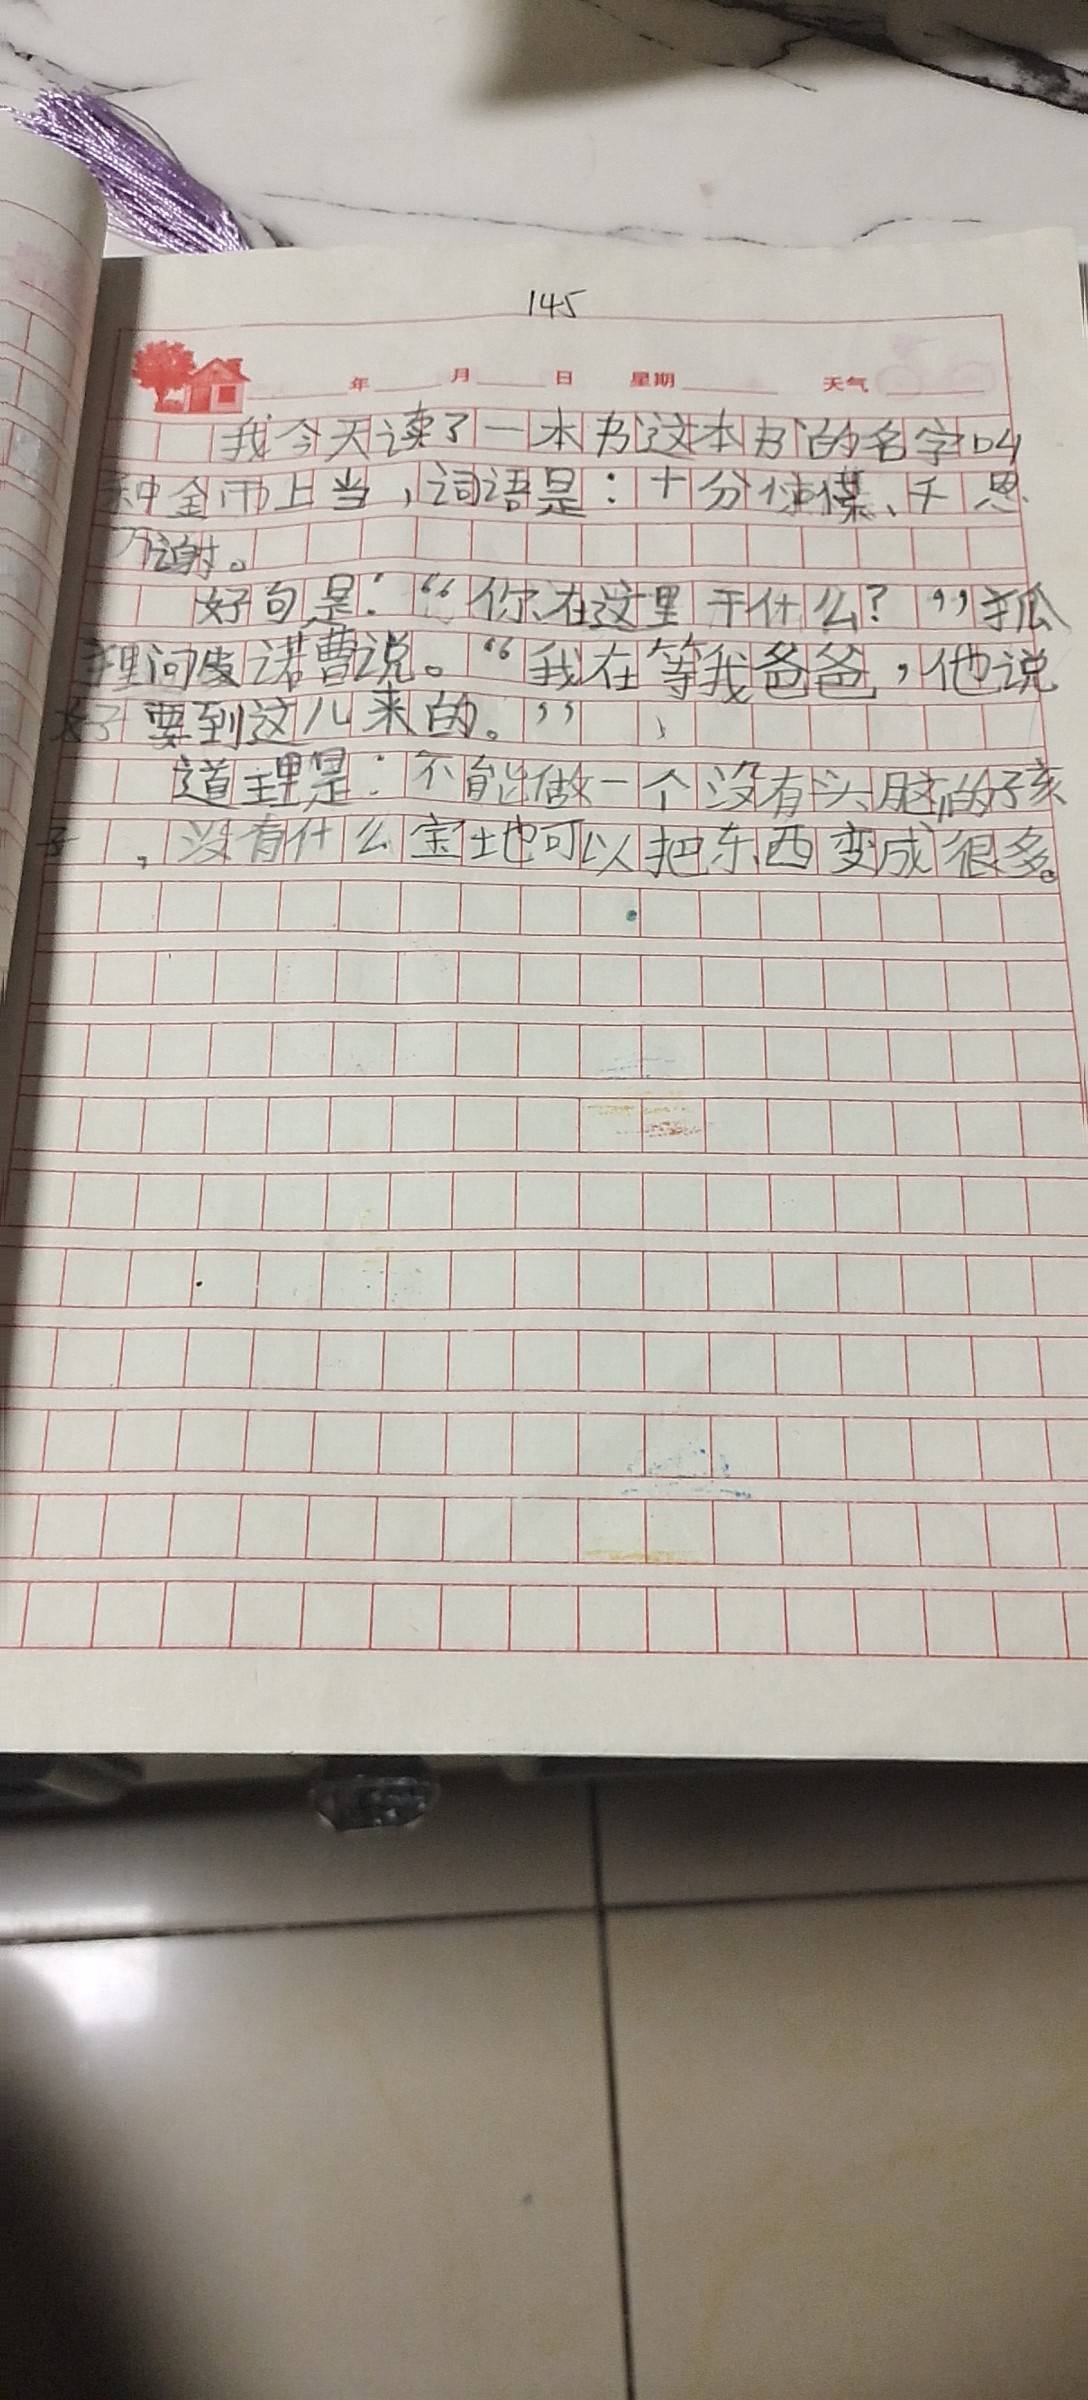 145
年 月 日 星期 天气
我今天读了一本书这本书的名字叫
种金币上当，词语是：十分、千恩
万谢。
好句是：“你在这里干什么？”狐
狸问皮诺曹说。“我在等我爸爸，他说
好要到这儿来的。”
道理是：不能做一个没有头脑的孩
子，没有什么宝地可以把东西变成很多。